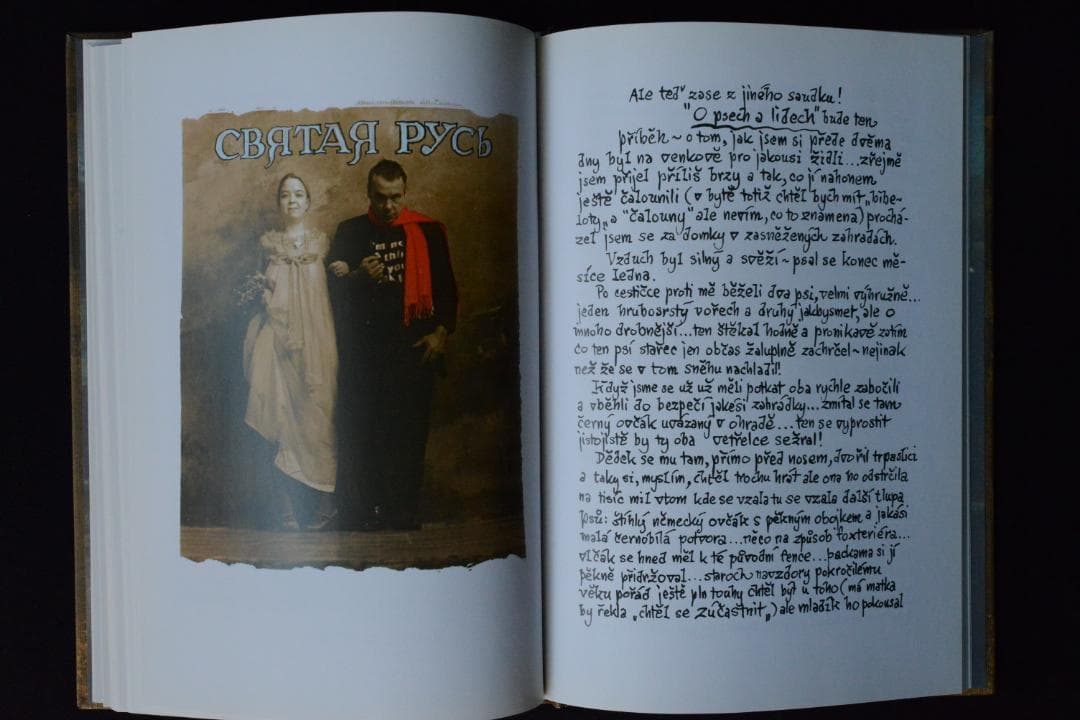 СВЯТАЯ РУСЬ
Ale teď zase z jiného soudku!
"O psech a lidech" bude ten
příběh ~ o tom, jak jsem si přede dvěma
dny byl na venkově pro jakousi židli...zřejmě
jsem přijel příliš brzy a tak, co jí nahonem
ještě čalounili (v bytě totiž chtěl bych mít „bibe-
loty„ a "čalouny" ale nevím, co to znamená) prochá-
zel jsem se za domky v zasněžených zahradách.
Vzduch byl silný a svěží ~ psal se konec mě-
síce ledna.
Po cestičce proti mě běželi dva psi, velmi výhružně...
jeden hruboarstý vořech a druhý jakbysmet, ale o
mnoho drobnější...ten štěkal hodně a pronikavě zatím
co ten psí stařec jen občas žaluplně zachrčel ~ nejinak
než že se v tom sněhu nachladil!
Když jsme se už už měli potkat oba rychle zabočili
a vběhli do bezpečí jakési zahrádky...zmítal se tam
černý ovčák uvázaný v ohradě...ten se vyprostit
jistojistě by ty oba vetřelce sežral!
Dědek se mu tam, přímo před nosem, dvořil trpaslici
a taky si, myslím, chtěl trochu hrát ale ona ho odstrčila
na tisíc mil vtom kde se vzala tu se vzala další tlupa
psů: štíhlý německý ovčák s pěkným obojkem a jakási
malá černobílá potvora...něco na způsob foxteriéra...
vlčák se hned měl k té původní fence...packama si jí
pěkně přidržoval...staroch navzdory pokročilému
věku pořád ještě pln touhy chtěl být u toho (má matka
by řekla „chtěl se zúčastnit„) ale mladík ho pokousal